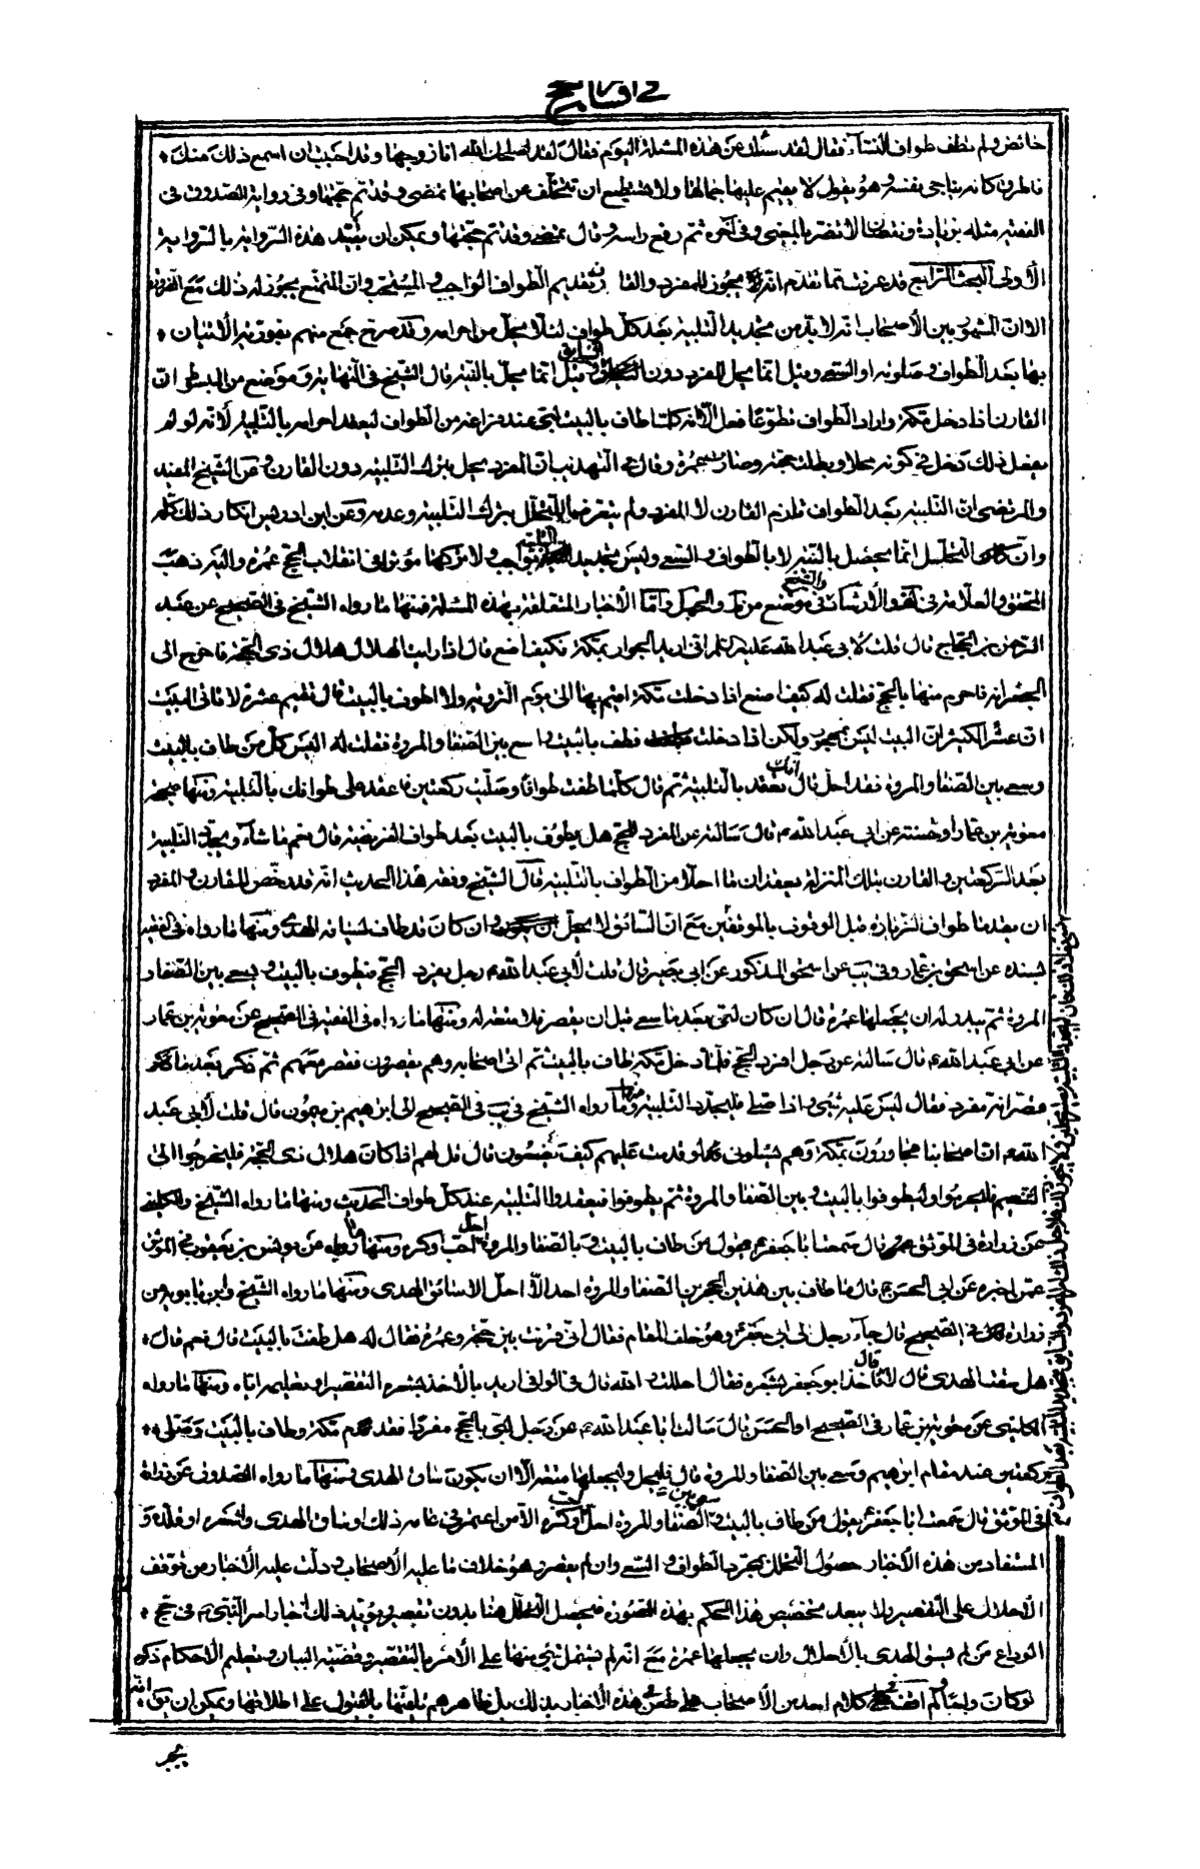 في اقسام الحج
حائض ولم تطف طواف النساء فقال لقد سئلت عن هذه المسئلة اليوم فقال لقد اصلحك الله انا زوجها وقد احببت ان اسمع ذلك منك
فاطرق كانه يناجي نفسه وهو يقول لا يقيم عليها جمالها ولا تستطيع ان تتخلف عن اصحابها تمضي وقد تم حجها وفي رواية الصدوق في
الفقيه مثله بزيادة ونقصان وفي آخره ثم رفع راسه وقال تمضي وقد تم حجها ويمكن ان يقيد هذه الرواية بالرواية
الاولى البحث الرابع قد عرفت مما تقدم انه يجوز للمفرد والقارن تقديم الطواف الواجب والمستحب وان المتمتع يجوز له ذلك مع الضرورة
الا ان المشهور بين الأصحاب انه لا بد من تجديد التلبية بعد كل طواف لئلا يحل من احرامه وقد صرح جمع منهم بفورية الاتيان
بها بعد الطواف وصلوته او وقيل انما يحل المفرد دون السائق وقيل انما يحل بالنية قال الشيخ في النهاية وموضع من المبسوط ان
القارن اذا دخل مكة واراد الطواف تطوعا فعل الا انه كلما طاف بالبيت لبى عند فراغه من الطواف ليعقد احرامه بالتلبية لأنه لو لم
يفعل ذلك دخل في كونه محلا وبطلت حجته وصارت عمرة وقال في التهذيب ان المفرد يحل بترك التلبية دون القارن وعن الشيخ المفيد
والمرتضى ان التلبية بعد الطواف تلزم القارن لا المفرد ولم يتعرضا للتحلل بترك التلبية وعدمه وعن ابن ادريس انكار ذلك كله
وان التحلل انما يحصل بالنية لا بالطواف والسعي وليس تجديد التلبية بواجب ولا تركها مؤثرا في انقلاب الحج عمرة واليه ذهب
المحقق والعلامة في والأرشاد والشيخ في موضع من والجمل واما الأخبار المتعلقة بهذه المسئلة فمنها ما رواه الشيخ في الصحيح عن عبد
الرحمن بن الحجاج قال قلت لابي عبد الله عليه السلام اني اريد الجوار بمكة فكيف اصنع قال اذا رايت الهلال هلال ذي الحجة فاخرج الى
الجعرانة فاحرم منها بالحج فقلت له كيف اصنع اذا دخلت مكة اقيم بها الى يوم التروية ولا اطوف بالبيت قال تقيم عشرة لا تاتي البيت
ان عشرا لكثير ان البيت ليس بمهجور ولكن اذا دخلت فطف بالبيت واسع بين الصفا والمروة فقلت له اليس كل من طاف بالبيت
وسعى بين الصفا والمروة فقد احل قال انك تعقد بالتلبية ثم قال كلما طفت طوافا وصليت ركعتين فاعقد على طوافك بالتلبية ومنها صحيحة
معوية بن عمار او حسنته عن ابي عبد الله ع قال سالته عن المفرد للحج هل يطوف بالبيت بعد طواف الفريضة قال نعم ما شاء ويجدد التلبية
بعد الركعتين والقارن بتلك المنزلة يعقدان ما احلا من الطواف بالتلبية قال الشيخ وفقه هذا الحديث انه قد رخص للقارن والمفرد
ان يقدما طواف الزيارة قبل الوقوف بالموقفين مع ان السائق لا يحل وان كان قد طاف لسياقه الهدى ومنها ما رواه في الفقيه
بسنده عن اسحق بن عمار وفي يب عن اسحق المذكور عن ابي بصير قال قلت لأبي عبد الله ع رجل يفرد الحج فيطوف بالبيت ويسعى بين الصفا و
المروة ثم يبدو له ان يجعلها عمرة قال ان كان لبى بعد ما سعى قبل ان يقصر فلا متعة له ومنها ما رواه في الفقيه في الصحيح عن معوية بن عمار
عن ابي عبد الله ع قال سالته عن رجل افرد الحج فلما دخل مكة طاف بالبيت ثم اتى اصحابه وهم يقصرون فقصر معهم ثم ذكر بعد ما
قصر انه مفرد فقال ليس عليه شيء اذا صلى فليجدد التلبية ومنها ما رواه الشيخ في يب في الصحيح الى ابراهيم بن ميمون قال قلت لأبي عبد
الله ع ان اصحابنا مجاورون بمكة وهم يسئلوني لو قدمت عليهم كيف يصنعون قال قل لهم اذا كان هلال ذي الحجة فليخرجوا الى
التنعيم فليحرموا وليطوفوا بالبيت وبين الصفا والمروة ثم يطوفوا فيعقدوا التلبية عند كل طواف الحديث ومنها ما رواه الشيخ والكليني
عن زرارة في الموثق قال سمعت ابا جعفر ع يقول من طاف بالبيت وبالصفا والمروة احل احب او كره ومنها ما رواه عن يونس بن يعقوب في الموثق
عمن اخبره عن ابي الحسن ع قال ما طاف بين هذين الحجرين الصفا والمروة احد الا احل الا سائق الهدى ومنها ما رواه الشيخ وابن بابويه عن
زرارة في الصحيح قال جاء رجل الى ابي جعفر ع وهو خلف المقام فقال اني قرنت بين حجة وعمرة فقال له هل طفت بالبيت قال نعم قال
هل سقت الهدى قال لا قال فاخذ ابو جعفر بشعره فقال احللت والله قال في الوافي اريد بالأخذ بشعره التقصير او تعليمه اياه ومنها ما رواه
الكليني عن معوية بن عمار في الصحيح او الحسن قال سالت ابا عبد الله ع عن رجل لبى بالحج مفردا فقدم مكة وطاف بالبيت وصلى
ركعتين عند مقام ابراهيم وسعى بين الصفا والمروة قال فليحل وليجعلها متعة الا ان يكون ساق الهدى ومنها ما رواه الصدوق عن زرارة
في الموثق قال سمعت ابا جعفر ع يقول من طاف بالبيت وسعى بين الصفا والمروة احل او كره الا من اعتمر في عامه ذلك او ساق الهدى واشعره او قلده و
المستفاد من هذه الأخبار حصول التحلل بمجرد الطواف والسعي وان لم يقصر وهو خلاف ما عليه الأصحاب ودلت عليه الأخبار من توقف
الأحلال على التقصير ولا يبعد تخصيص هذا الحكم بهذه الصورة فيحصل التحلل هنا بدون تقصير ويؤيد ذلك اخبار امر النبي ص في حج
الوداع من لم يسق الهدى بالأحلال وان يجعلها عمرة مع انه لم يشتمل شيء منها على الأمر بالتقصير وقضية البيان وتعليم الاحكام ذكره
لو كان واجبا ولم اقف في كلام احد من الأصحاب على طعن في هذه الأخبار بذلك بل ظاهرهم تلقيها بالقبول على اطلاقها ويمكن ان يق انه